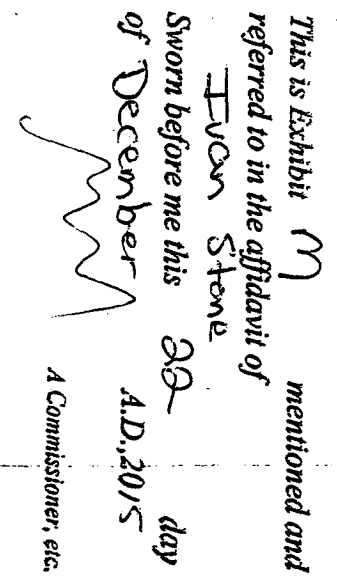 This is Exhibit M mentioned and
referred to in the affidavit of
Ivan Stone
Sworn before me this 22 day
of December A.D., 2015
A Commissioner, etc.